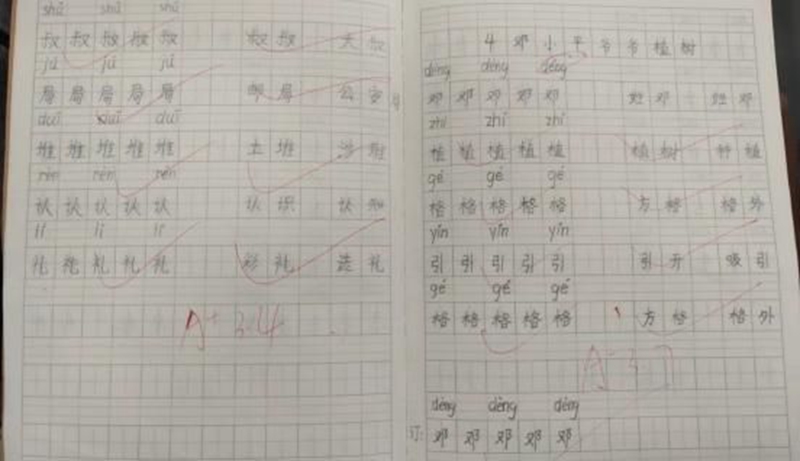 shū shū shū
叔 叔 叔 叔 叔 叔 叔 大 叔
jú jú jú
局 局 局 局 局 邮 局 公 安 局
duī duī duī
堆 堆 堆 堆 堆 土 堆 堆
rèn rèn rèn
认 认 认 认 认 认 识 认 知
lǐ lǐ lǐ
礼 礼 礼 礼 礼 彩 礼 送 礼
A+ 3.4
4 邓 小 平 爷 爷 植 树
dèng dèng dèng
邓 邓 邓 邓 邓 姓 邓 姓 邓
zhí zhí zhí
植 植 植 植 植 植 树 种 植
gé gé gé
格 格 格 格 格 方 格 格 外
yǐn yǐn yǐn
引 引 引 引 引 引 开 吸 引
gé gé gé
格 格 格 格 格 方 格 格 外
dèng dèng dèng
订: 邓 邓 邓 邓 邓